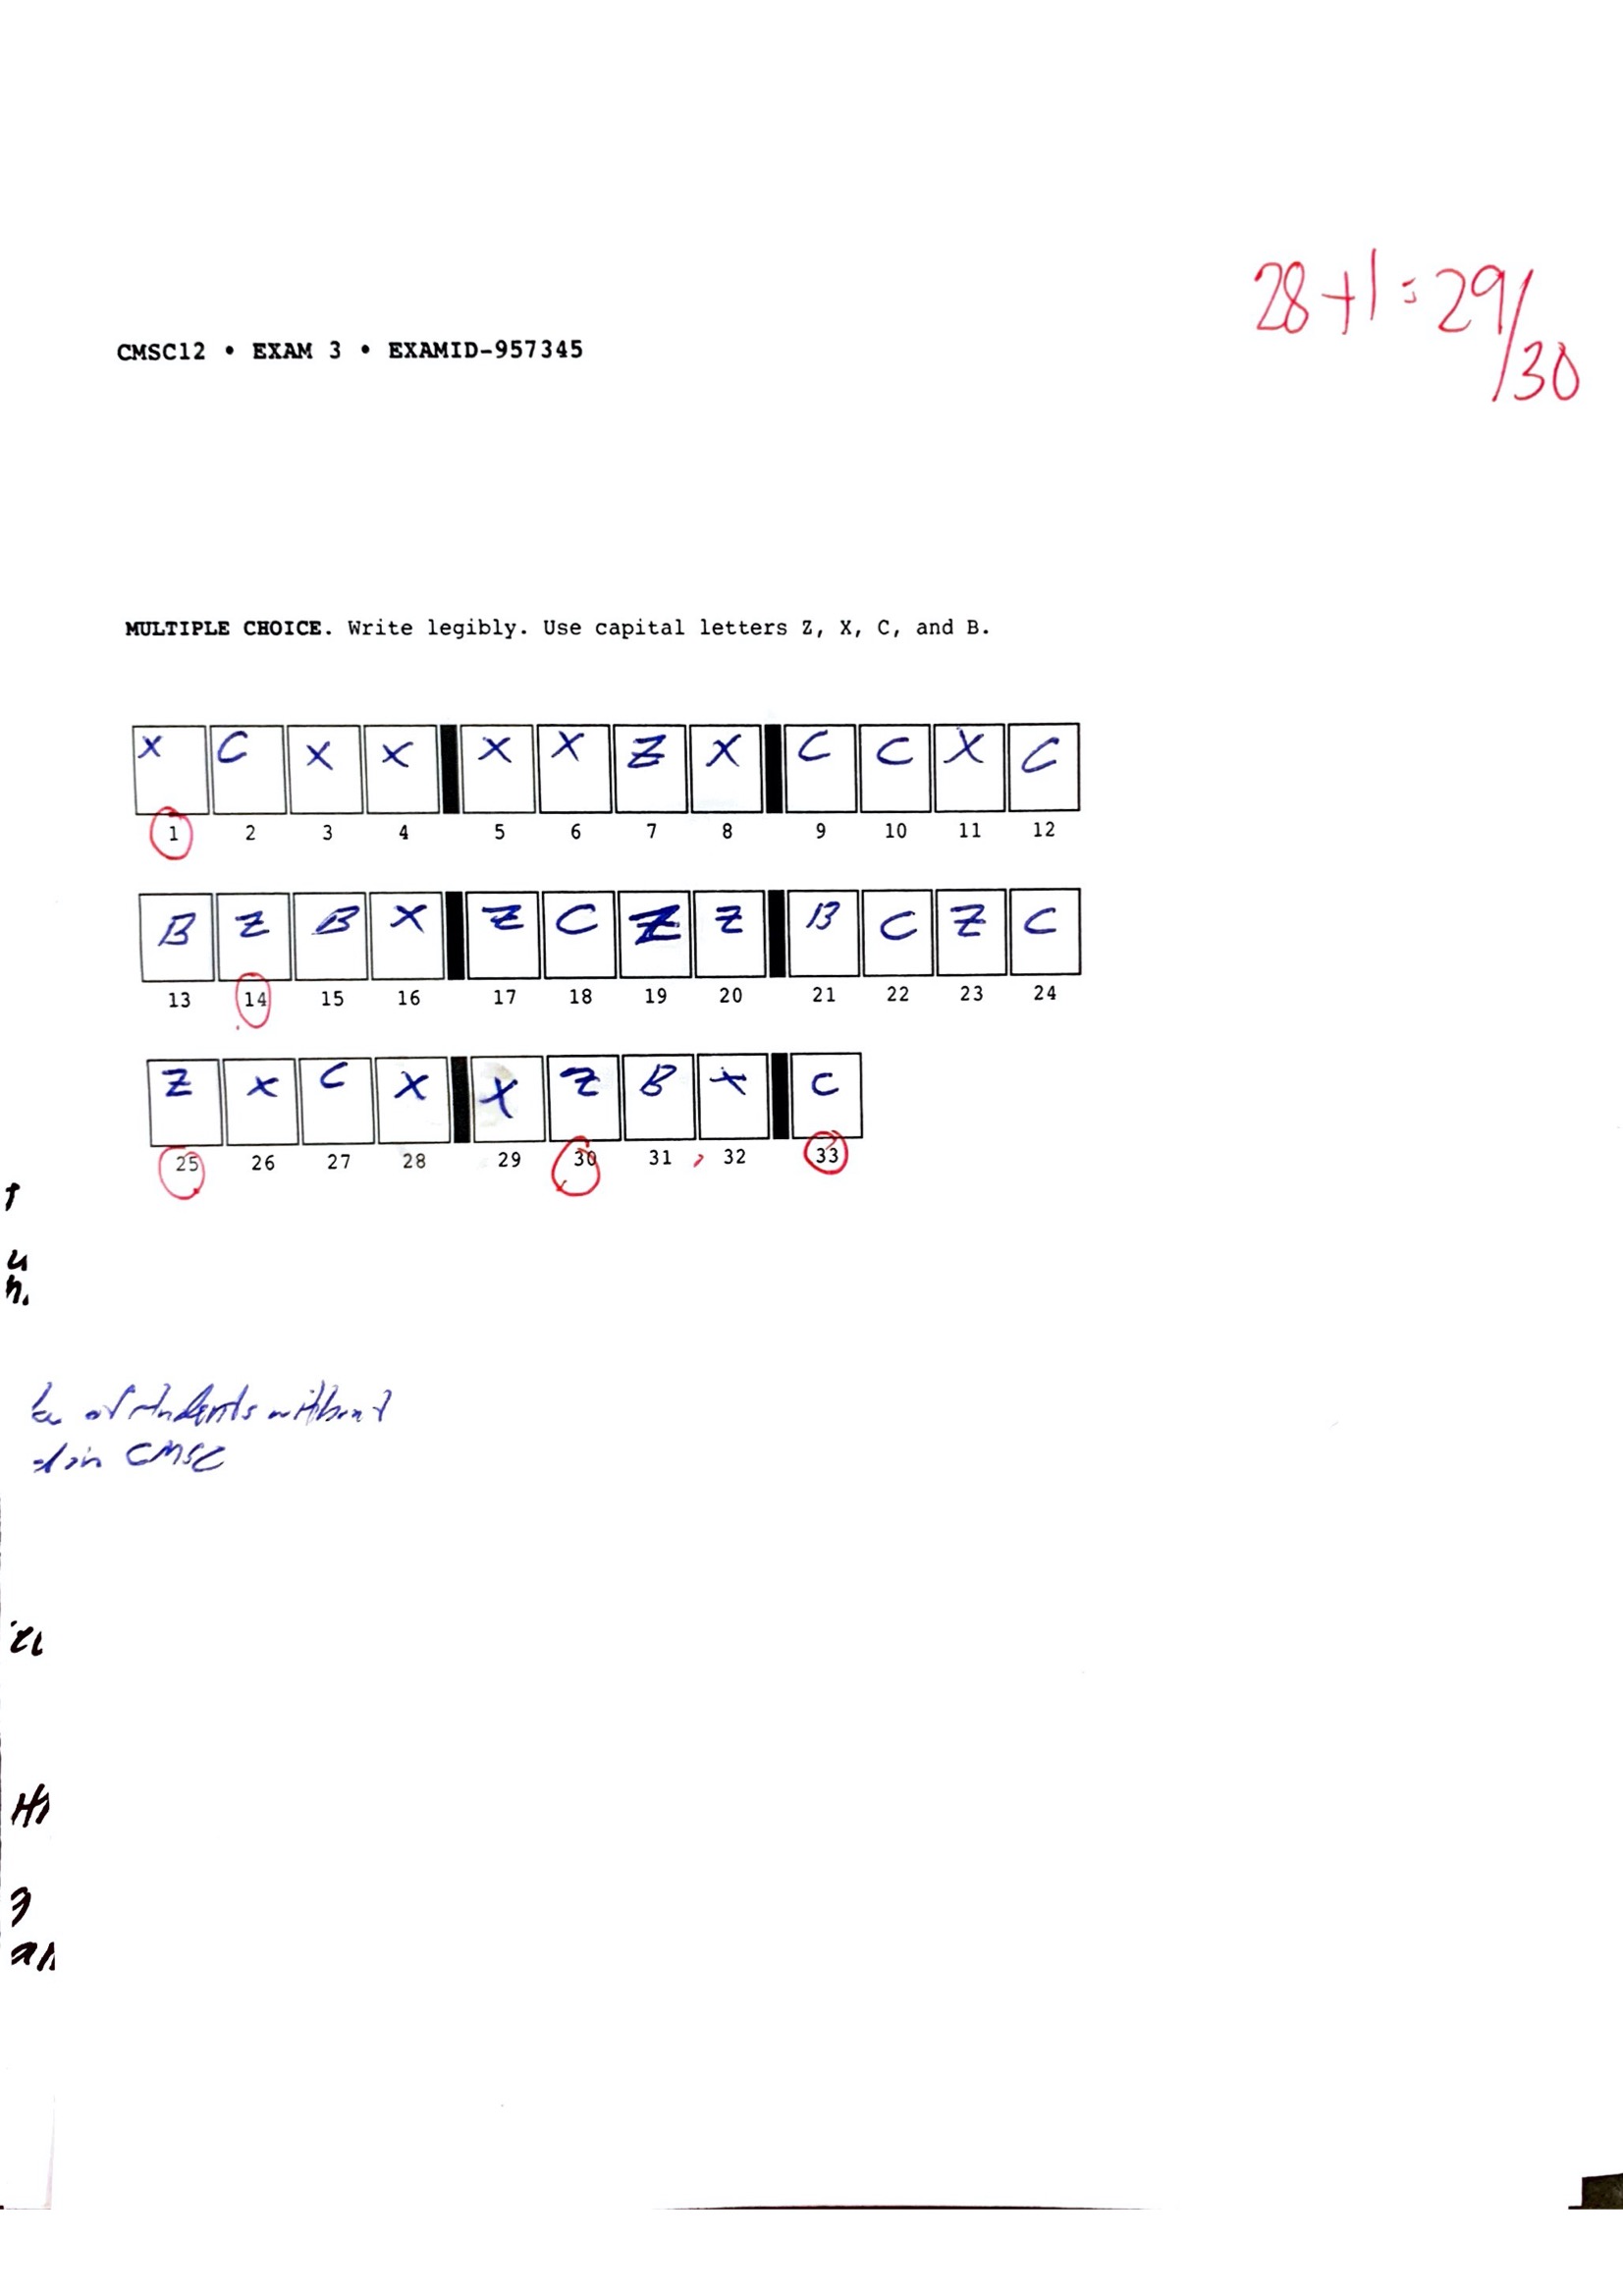 28+1=29/30
CMSC12 • EXAM 3 • EXAMID-957345
MULTIPLE CHOICE. Write legibly. Use capital letters Z, X, C, and B.
X C X X X X Z X C C X C
1 2 3 4 5 6 7 8 9 10 11 12
B Z B X Z C Z Z B C Z C
13 14 15 16 17 18 19 20 21 22 23 24
Z X C X X Z B X C
25 26 27 28 29 30 31 32 33
of students without
in CMSC